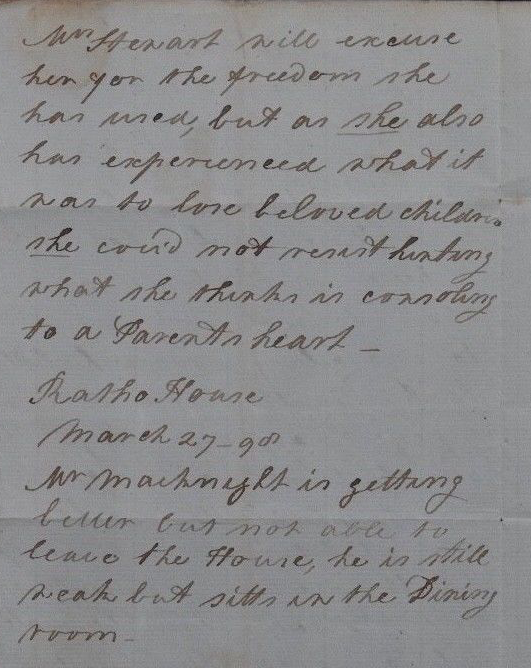 Mrs Stewart will excuse
her for the freedom she
has used, but as she also
has experienced what it
was to lose beloved children
she cou'd not resist hinting
what she thinks is consoling
to a Parents heart —
Ratho House
March 27 - 98
Mr Macknight is getting
better but not able to
leave the House, he is still
weak but sitts in the Dining
room —